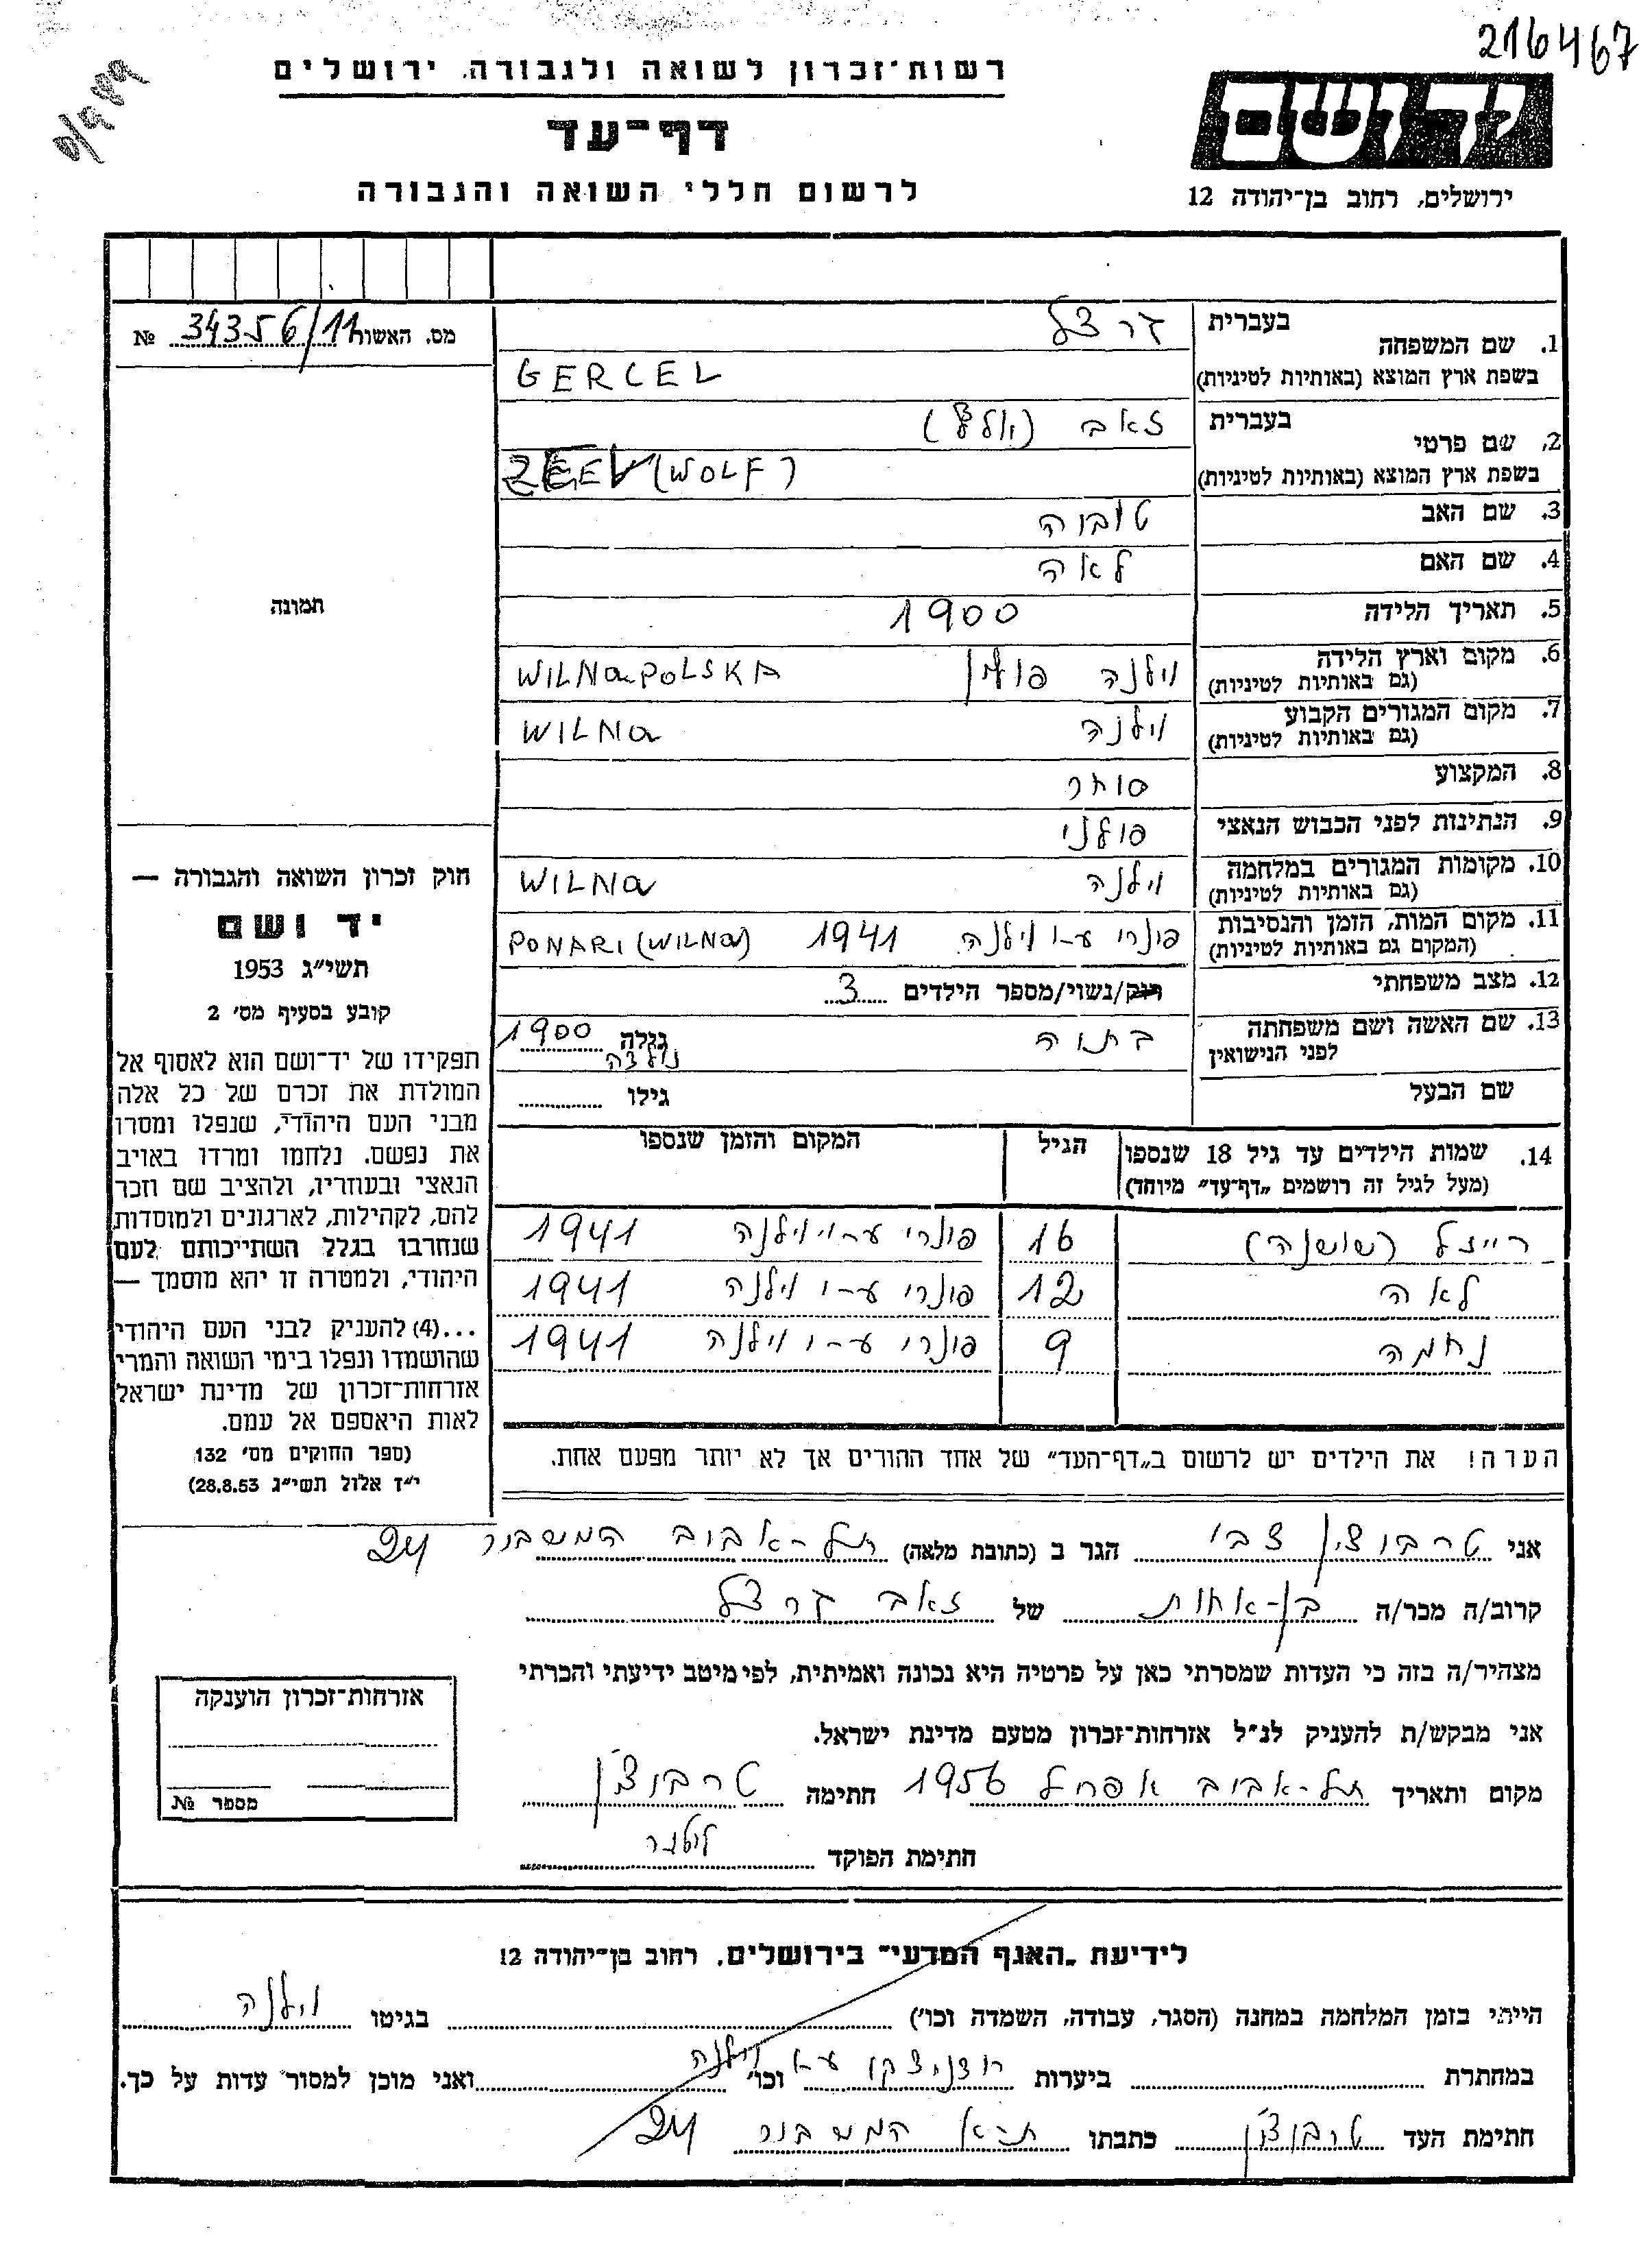 216467
רשות־זכרון לשואה ולגבורה. ירושלים
דף־עד
לרשום חללי השואה והגבורה
ידושם
ירושלים, רחוב בן־יהודה 12
מס. האשור 34356/11 №
תמונה
1. שם המשפחה
בעברית
גרצל
בשפת ארץ המוצא (באותיות לטיניות)
GERCEL
2. שם פרטי
בעברית
זאב (וולף)
בשפת ארץ המוצא (באותיות לטיניות)
ZEEV (WOLF)
3. שם האב
טוביה
4. שם האם
לאה
5. תאריך הלידה
1900
6. מקום וארץ הלידה
(גם באותיות לטיניות)
וילנה פולין WILNA POLSKA
7. מקום המגורים הקבוע
(גם באותיות לטיניות)
וילנה WILNA
8. המקצוע
סוחר
9. הנתינות לפני הכבוש הנאצי
פולני
10. מקומות המגורים במלחמה
(גם באותיות לטיניות)
וילנה WILNA
11. מקום המות, הזמן והנסיבות
(המקום גם באותיות לטיניות)
פונרי ע-י וילנה 1941 PONARI (WILNA)
12. מצב משפחתי
רוק/נשוי/מספר הילדים 3
13. שם האשה ושם משפחתה
לפני הנישואין
בתיה
גילה 1900
נולדה
שם הבעל
גילו
14. שמות הילדים עד גיל 18 שנספו
(מעל לגיל זה רושמים „דף־עד" מיוחד)
הגיל
המקום והזמן שנספו
רייזל (שושנה) 16 פונרי ע-י וילנה 1941
לאה 12 פונרי ע-י וילנה 1941
נחמה 9 פונרי ע-י וילנה 1941
הערה! את הילדים יש לרשום ב„דף־העד" של אחד ההורים אך לא יותר מפעם אחת.
חוק זכרון השואה והגבורה —
יד ושם
תשי״ג 1953
קובע בסעיף מס׳ 2
תפקידו של יד־ושם הוא לאסוף אל
המולדת את זכרם של כל אלה
מבני העם היהודי, שנפלו ומסרו
את נפשם. נלחמו ומרדו באויב
הנאצי ובעוזריו, ולהציב שם וזכר
להם, לקהילות, לארגונים ולמוסדות
שנחרבו בגלל השתייכותם לעם
היהודי, ולמטרה זו יהא מוסמך —
...(4) להעניק לבני העם היהודי
שהושמדו ונפלו בימי השואה והמרי
אזרחות־זכרון של מדינת ישראל
לאות היאספם אל עמם.
(ספר החוקים מס׳ 132
י״ז אלול תשי״ג 28.8.53)
אני טרבוצ'ין צבי הגר ב (כתובת מלאה) תל-אביב המשביר 24
קרוב/ה מכר/ה בן-אחות של זאב גרצל
מצהיר/ה בזה כי העדות שמסרתי כאן על פרטיה היא נכונה ואמיתית, לפי מיטב ידיעתי והכרתי
אני מבקש/ת להעניק לנ״ל אזרחות־זכרון מטעם מדינת ישראל.
מקום ותאריך תל-אביב אפריל 1956 חתימה טרבוצ'ין
חתימת הפוקד
אזרחות־זכרון הוענקה
מספר №
לידיעת „האגף המדעי" בירושלים. רחוב בן־יהודה 12
הייתי בזמן המלחמה במחנה (הסגר, עבודה, השמדה וכו׳) בגיטו וילנה
במחתרת ביערות רודניצקי ע-י וילנה וכו׳ ואני מוכן למסור עדות על כך.
חתימת העד טרבוצ'ין כתבתו ת-א המשביר 24